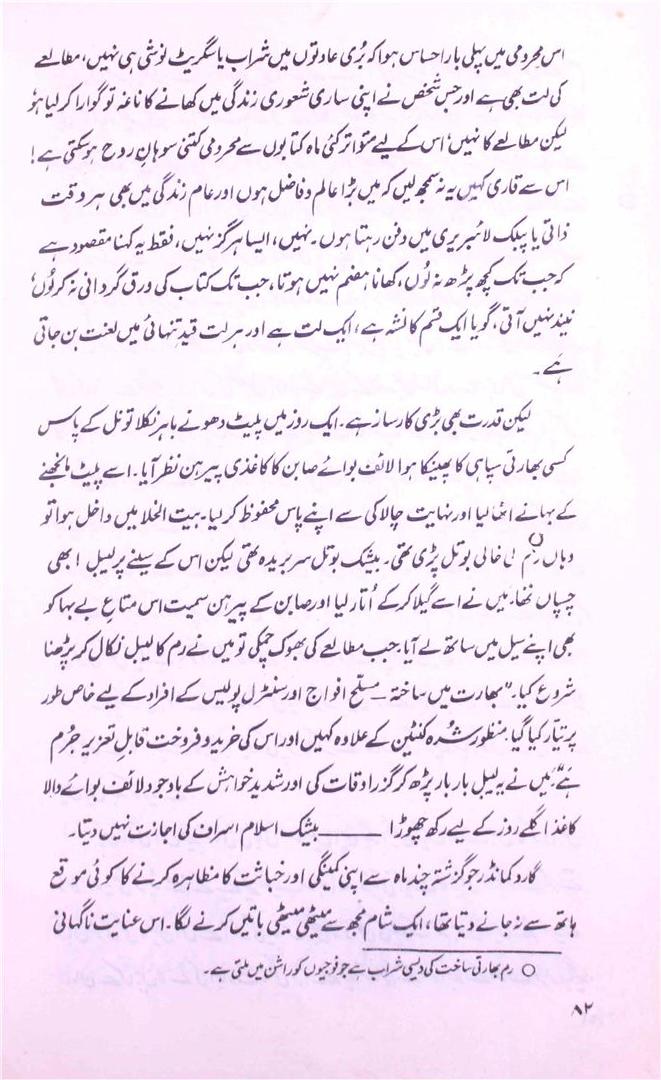 اس محرومی میں پہلی بار احساس ہوا کہ بُری عادتوں میں شراب یا سگریٹ نوشی ہی نہیں، مطالعے
کی لت بھی ہے اور جس شخص نے اپنی ساری شعوری زندگی میں کھانے کا ناغہ تو گوارا کر لیا ہو
لیکن مطالعے کا نہیں، اس کے لیے متواتر کئی ماہ کتابوں سے محرومی کتنی سوہانِ روح ہو سکتی ہے!
اس سے قاری کہیں یہ نہ سمجھ لیں کہ میں بڑا عالم و فاضل ہوں اور عام زندگی میں بھی ہر وقت
ذاتی یا پبلک لائبریری میں دفن رہتا ہوں۔ نہیں، ایسا ہرگز نہیں، فقط یہ کہنا مقصود ہے
کہ جب تک کچھ پڑھ نہ لُوں، کھانا ہضم نہیں ہوتا، جب تک کتاب کی ورق گردانی نہ کر لُوں،
نیند نہیں آتی، گویا ایک قسم کا نشہ ہے، ایک لت ہے اور ہر لت قیدِ تنہائی میں لعنت بن جاتی
ہَے۔
لیکن قدرت بھی بڑی کارساز ہے۔ ایک روز میں پلیٹ دھونے باہر نکلا تو نل کے پاس
کسی بھارتی سپاہی کا پھینکا ہوا لائف بوائے صابن کا کاغذی پیرہن نظر آیا۔ اسے پلیٹ مانجھنے
کے بہانے اٹھا لیا اور نہایت چالاکی سے اپنے پاس محفوظ کر لیا۔ بیت الخلا میں داخل ہوا تو
وہاں رم○ کی خالی بوتل پڑی تھی۔ بیشک بوتل سر بریدہ تھی لیکن اس کے سینے پر لیبل ابھی
چسپاں تھا۔ میں نے اسے گیلا کر کے اُتار لیا اور صابن کے پیرہن سمیت اس متاعِ بے بہا کو
بھی اپنے سیل میں ساتھ لے آیا۔ جب مطالعے کی بھوک چمکی تو میں نے رم کا لیبل نکال کر پڑھنا
شروع کیا۔ "بھارت میں ساختہ — مسلّح افواج اور سنٹرل پولیس کے افراد کے لیے خاص طور
پر تیار کیا گیا۔ منظور شدہ کنٹین کے علاوہ کہیں اور اس کی خرید و فروخت قابلِ تعزیر جُرم
ہَے"۔ میں نے یہ لیبل بار بار پڑھ کر گزر اوقات کی اور شدید خواہش کے باوجود لائف بوائے والا
کاغذ اگلے روز کے لیے رکھ چھوڑا ——— بیشک اسلام اسراف کی اجازت نہیں دیتا۔
گارد کمانڈر جو گزشتہ چند ماہ سے اپنی کمینگی اور خباثت کا مظاہرہ کرنے کا کوئی موقع
ہاتھ سے نہ جانے دیتا تھا، ایک شام مجھ سے میٹھی میٹھی باتیں کرنے لگا۔ اس عنایت ناگہانی
○ رم بھارتی ساخت کی دیسی شراب ہے جو فوجیوں کو راشن میں ملتی ہے۔
۸۲